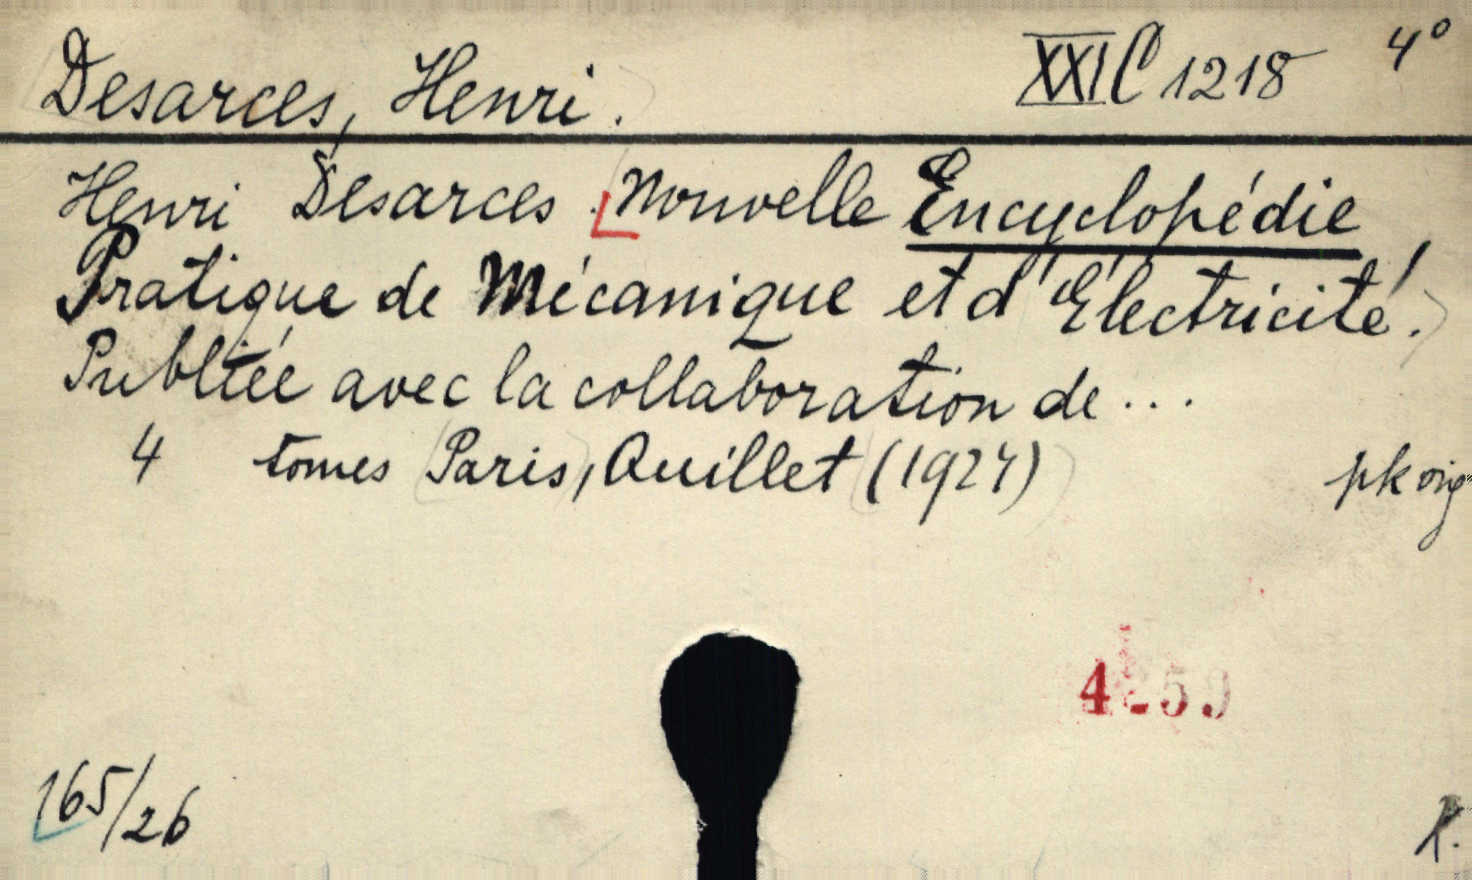 Desarces, Henri.
XXI C 1218 4°
Henri Desarces. Nouvelle Encyclopédie
Pratique de Mécanique et d'Électricité.
Publiée avec la collaboration de...
4 tomes Paris, Quillet (1924)
pk orig
165/26